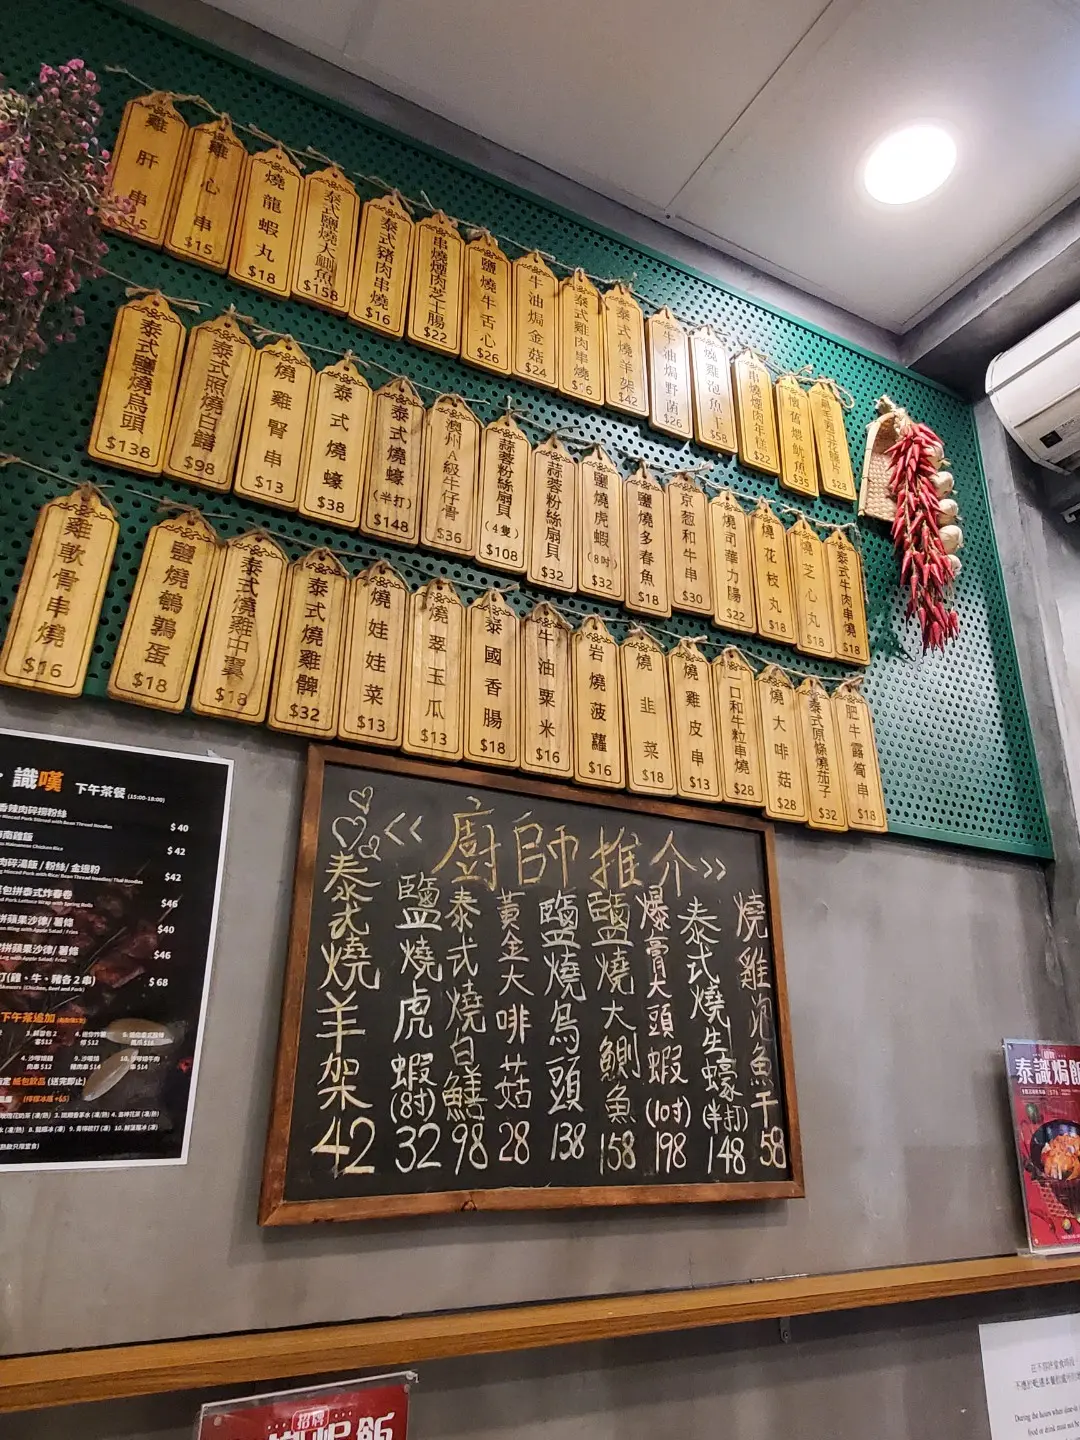 雞肝串
雞心串 $15
燒龍蝦丸 $18
泰式鹽燒大鰂魚 $158
泰式豬肉串燒 $16
串燒煙肉芝士腸 $22
鹽燒牛舌心 $26
牛油焗金菇 $24
泰式雞肉串燒 $16
泰式燒羊架 $42
牛油焗野菌 $26
燒雞泡魚干 $58
串燒煙肉年糕 $22
$35
$28
泰式鹽燒烏頭 $138
泰式照燒白鱔 $98
燒雞腎串 $13
泰式燒蠔 $38
泰式燒蠔(半打) $148
澳州A級牛仔骨 $36
蒜蓉粉絲扇貝(4隻) $108
蒜蓉粉絲扇貝 $32
鹽燒虎蝦(8吋) $32
鹽燒多春魚 $18
京葱和牛串 $30
燒司華力腸 $22
燒花枝丸 $18
燒芝心丸 $18
泰式牛肉串燒 $18
雞軟骨串燒 $16
鹽燒鵪鶉蛋 $18
泰式燒雞中翼 $18
泰式燒雞髀 $32
燒娃娃菜 $13
燒翠玉瓜 $13
泰國香腸 $18
牛油粟米 $16
岩燒菠蘿 $16
燒韭菜 $18
燒雞皮串 $13
一口和牛粒串燒 $28
燒大啡菇 $28
泰式原條燒茄子 $32
肥牛露筍串 $18
<< 廚師推介 >>
泰式燒羊架 42
鹽燒虎蝦(8吋) 32
泰式燒白鱔 98
黃金大啡菇 28
鹽燒烏頭 138
鹽燒大鰂魚 158
爆膏大頭蝦(10寸) 198
泰式燒生蠔(半打) 148
燒雞泡魚干 58
識嘆 下午茶餐 (15:00-18:00)
香辣肉碎撈粉絲 $40
$42
肉碎湯飯 / 粉絲 / 金邊粉 $42
包拼泰式炸春卷 $46
拼蘋果沙律/ 薯條 $40
拼蘋果沙律/ 薯條 $46
(雞、牛、豬各2串) $68
下午茶追加
泰識焗飯
招牌
During the hours when